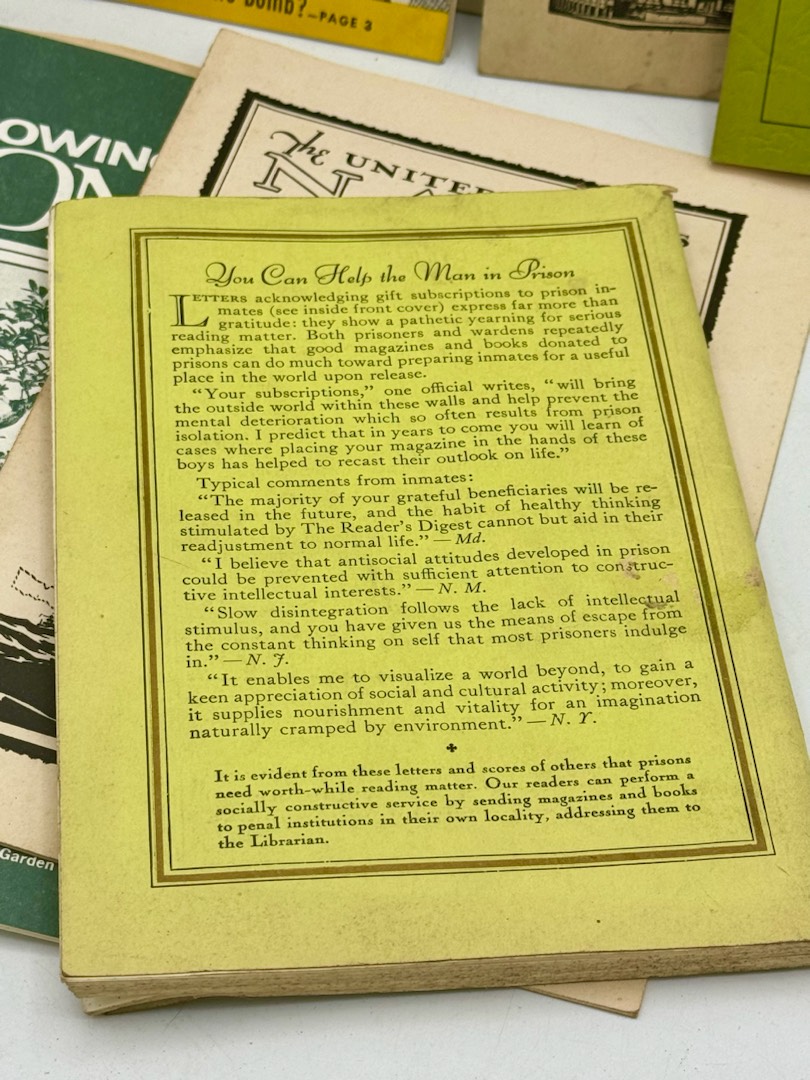 BOMB?—PAGE 3
OWIN
The UNITE
You Can Help the Man in Prison
LETTERS acknowledging gift subscriptions to prison in-
mates (see inside front cover) express far more than
gratitude: they show a pathetic yearning for serious
reading matter. Both prisoners and wardens repeatedly
emphasize that good magazines and books donated to
prisons can do much toward preparing inmates for a useful
place in the world upon release.
“Your subscriptions,” one official writes, “will bring
the outside world within these walls and help prevent the
mental deterioration which so often results from prison
isolation. I predict that in years to come you will learn of
cases where placing your magazine in the hands of these
boys has helped to recast their outlook on life.”
Typical comments from inmates:
“The majority of your grateful beneficiaries will be re-
leased in the future, and the habit of healthy thinking
stimulated by The Reader’s Digest cannot but aid in their
readjustment to normal life.” — Md.
“I believe that antisocial attitudes developed in prison
could be prevented with sufficient attention to construc-
tive intellectual interests.” — N. M.
“Slow disintegration follows the lack of intellectual
stimulus, and you have given us the means of escape from
the constant thinking on self that most prisoners indulge
in.” — N. J.
“It enables me to visualize a world beyond, to gain a
keen appreciation of social and cultural activity; moreover,
it supplies nourishment and vitality for an imagination
naturally cramped by environment.” — N. Y.
It is evident from these letters and scores of others that prisons
need worth-while reading matter. Our readers can perform a
socially constructive service by sending magazines and books
to penal institutions in their own locality, addressing them to
the Librarian.
Garden